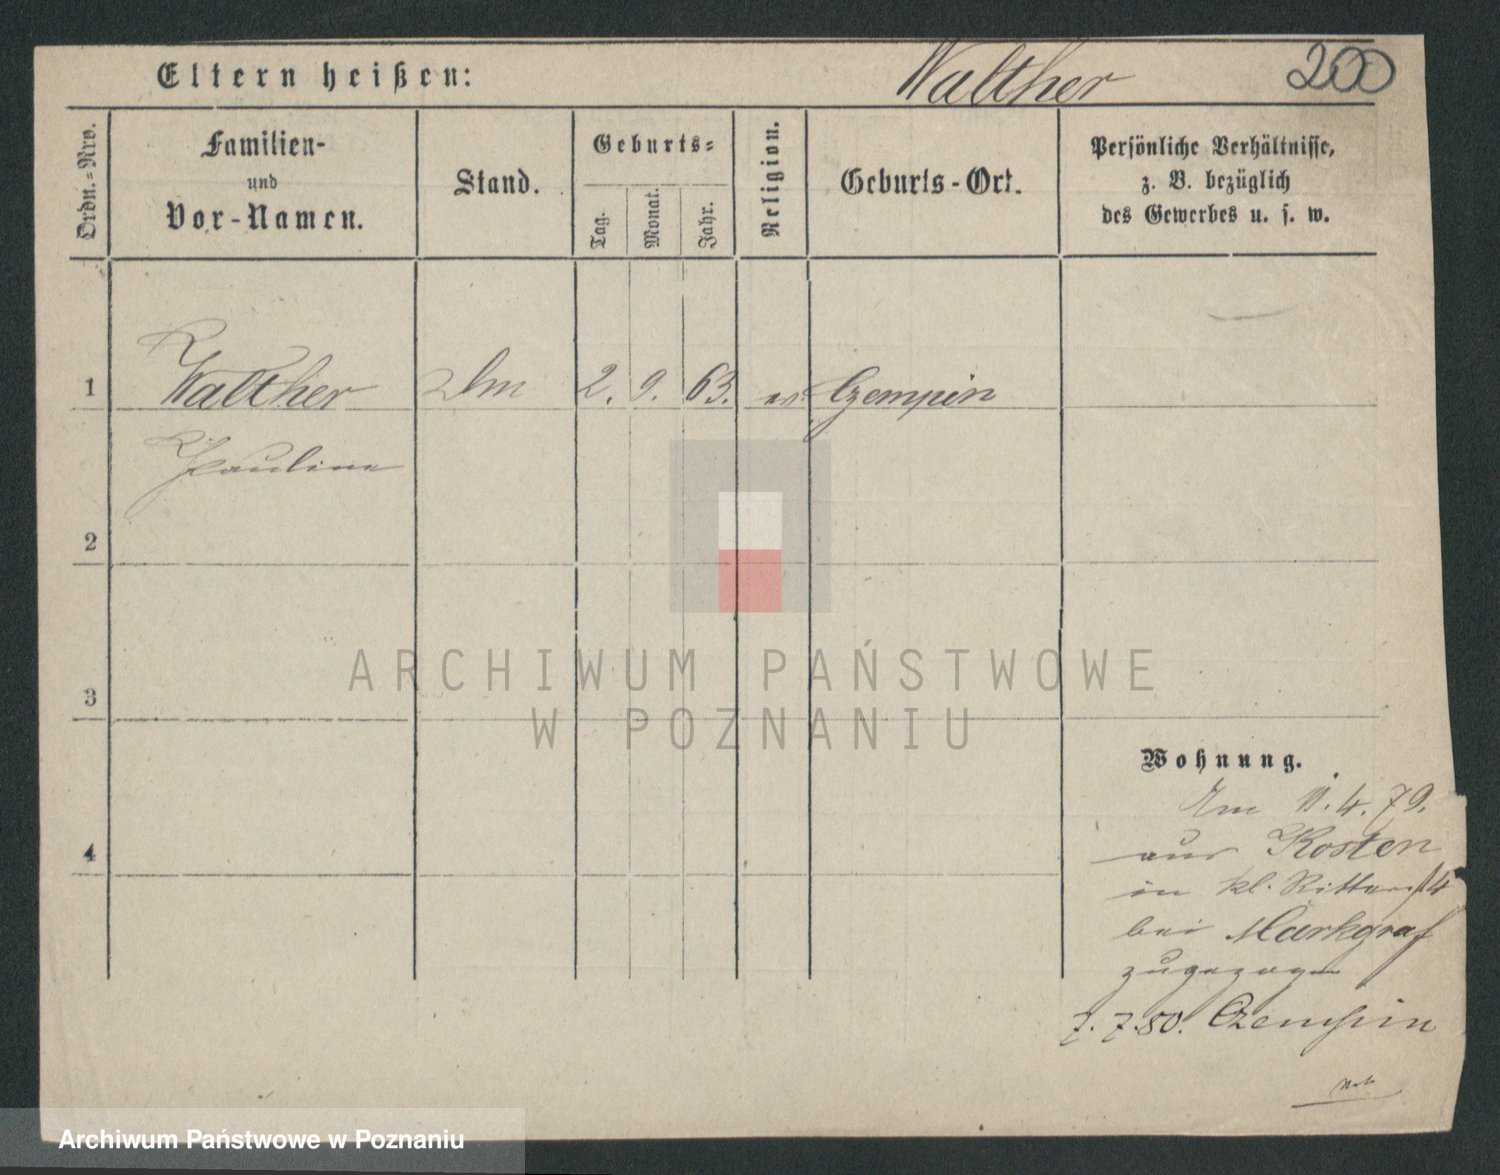 Eltern heißen: Walther 200
Ordn.-Nro.
Familien-
und
Vor-Namen.
Stand.
Geburts-
Tag.
Monat.
Jahr.
Religion.
Geburts-Ort.
Persönliche Verhältnisse,
z. B. bezüglich
des Gewerbes u. s. w.
1 Walther 2. 9. 63. ev Czempin
Pauline
2
3
4
ARCHIWUM PAŃSTWOWE
W POZNANIU
Wohnung.
Am 11.4.79.
aus Kosten
in kl. Ritterst 4
bei Markgraf
zugezogen
7.7.80. Czempin
Archiwum Państwowe w Poznaniu